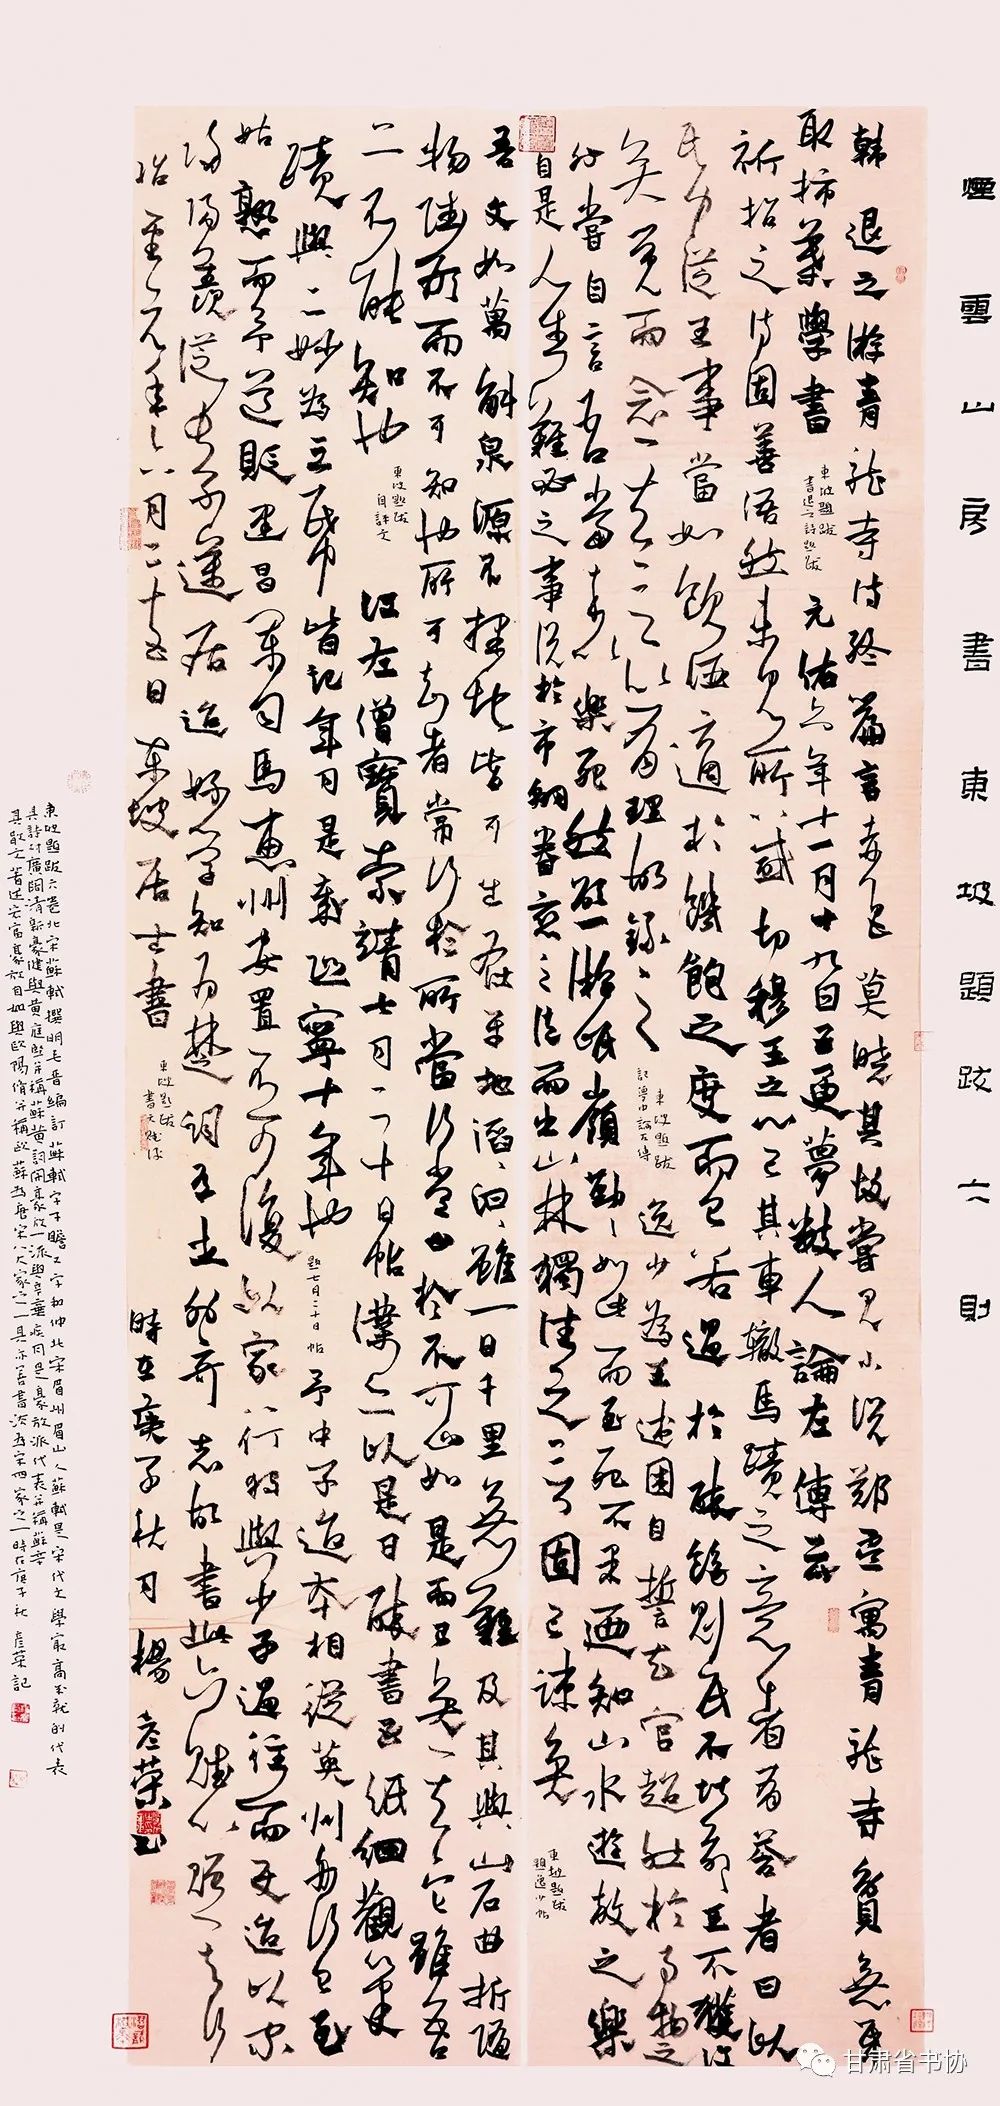 煙雲山房書東坡題跋六則
韓退之游青龍寺詩終篇言赤色莫曉其故嘗見小說鄭虔寓青龍寺貧無紙
取柿葉學書
東坡題跋
書退之詩題跋
元佑六年十一月十九日五更夢數人論左傳云
祈招之詩固善語然未見所以感切穆王之心已其車轍馬蹟之意者有答者曰以
民力從王事當如飲酒適於饑飽之度而已若過於醉飽則民不堪命王不獲沒
矣覺而念其言似有理故錄之
東坡題跋
記夢中論左傳
逸少為王述困自誓去官超然於事物之
外嘗自言吾當卒以樂死然欲一游岷嶺勤勤如此而至死不果迺知山水遊放之樂
自是人生難必之事況於市朝眷戀之徒而出山林獨往之言固已疎矣
東坡題跋
題逸少帖
吾文如萬斛泉源不擇地皆可出在平地滔滔汩汩雖一日千里無難及其與山石曲折隨
物賦形而不可知也所可知者常行於所當行常止於不可不止如是而已矣其它雖吾
二不能知也
東坡題跋
自評文
江左僧寶索靖七月二十日帖僕亦以是日醉書五紙細觀筆
蹟與二妙為三每紙皆記年月是歲熙寧十年也
題七月二十日帖
予中子迨本相從英州舟行已至
姑熟而予道貶建昌軍司馬惠州安置不可復以家行獨與少子過往而使迨以家
歸陽羨從長子邁居迨好學知為楚詞有世外奇志故書此六賦以贈其行
紹聖元年六月二十五日東坡居士書
東坡題跋
書六賦後
時在庚子秋月楊彥榮書
東坡題跋六卷北宋蘇軾撰明毛晉編訂蘇軾字子瞻又字和仲北宋眉州眉山人蘇軾是宋代文學最高成就的代表
其詩材廣闊清新豪健與黃庭堅并稱蘇黃詞開豪放一派與辛棄疾同是豪放派代表并稱蘇辛
其散文著述宏富豪放自如與歐陽修并稱歐蘇為唐宋八大家之一其亦善書法為宋四家之一時在庚子秋彥榮記
甘肃省书协